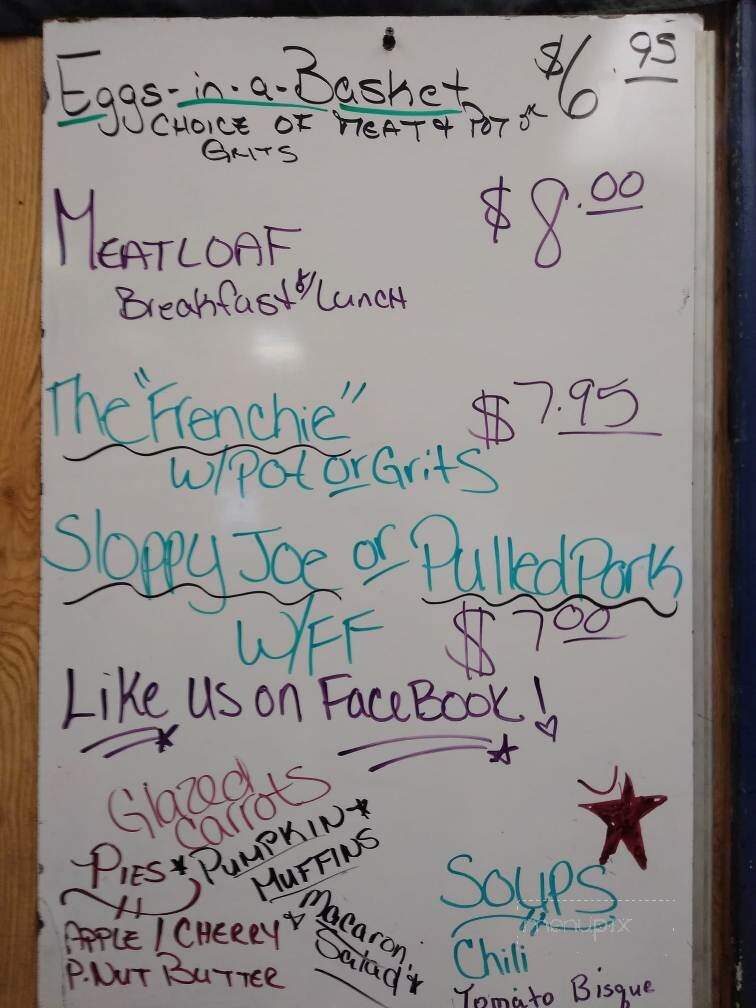 Eggs-in-a-Basket $6.95
CHOICE OF MEAT & POT or
GRITS
MEATLOAF $8.00
Breakfast &/Lunch
The "Frenchie" $7.95
W/Pot or Grits
Sloppy Joe or Pulled Pork
W/FF $7.00
Like us on FaceBook!
Glazed
Carrots
PIES * PUMPKIN *
MUFFINS
APPLE / CHERRY
P.NUT BUTTER
Macaron.
Salad *
SOUPS
menupix
Chili
Tomato Bisque